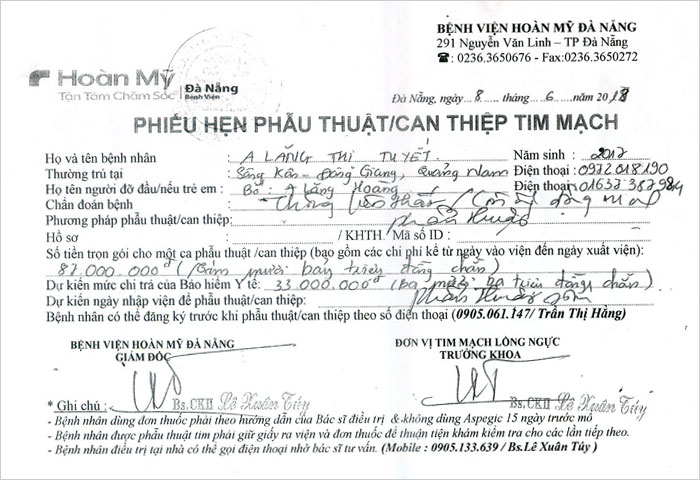 BỆNH VIỆN HOÀN MỸ ĐÀ NẴNG
291 Nguyễn Văn Linh – TP Đà Nẵng
☎: 0236.3650676 - Fax:0236.3650272
Hoàn Mỹ Đà Nẵng
Tận Tâm Chăm Sóc Bệnh Viện
Đà Nẵng, ngày 8 tháng 6 năm 2018
PHIẾU HẸN PHẪU THUẬT/CAN THIỆP TIM MẠCH
Họ và tên bệnh nhân : A LĂNG THỊ TUYẾT. Năm sinh : 2017
Thường trú tại : Sông Kôn - Đông Giang, Quảng Nam Điện thoại : 0972018190
Họ tên người đỡ đầu/nếu trẻ em : Bố: A Lăng Hoàng Điện thoại: 01637387984
Chẩn đoán bệnh : Thông liên thất / Còn ống động mạch
Phương pháp phẫu thuật/can thiệp: phẫu thuật
Hồ sơ : / KHTH Mã số ID :
Số tiền trọn gói cho một ca phẫu thuật /can thiệp (bao gồm các chi phí kể từ ngày vào viện đến ngày xuất viện):
87.000.000đ (Tám mươi bảy triệu đồng chẵn)
Dự kiến mức chi trả của Bảo hiểm Y tế: 33.000.000đ (Ba mươi ba triệu đồng chẵn)
Dự kiến ngày nhập viện để phẫu thuật/can thiệp: phẫu thuật sớm
Bệnh nhân có thể đăng ký trước khi phẫu thuật/can thiệp theo số điện thoại (0905.061.147/ Trần Thị Hằng)
BỆNH VIỆN HOÀN MỸ ĐÀ NẴNG ĐƠN VỊ TIM MẠCH LỒNG NGỰC
GIÁM ĐỐC TRƯỞNG KHOA
Bs.CKII Lê Xuân Túy Bs.CKII Lê Xuân Túy
* Ghi chú :
- Bệnh nhân dùng đơn thuốc phải theo hướng dẫn của Bác sĩ điều trị & không dùng Aspegic 15 ngày trước mổ
- Bệnh nhân được phẫu thuật tim phải giữ giấy ra viện và đơn thuốc để thuận tiện khám kiểm tra cho các lần tiếp theo.
- Bệnh nhân điều trị tại nhà có thể gọi điện thoại nhờ bác sĩ tư vấn. (Mobile : 0905.133.639 / Bs.Lê Xuân Túy )